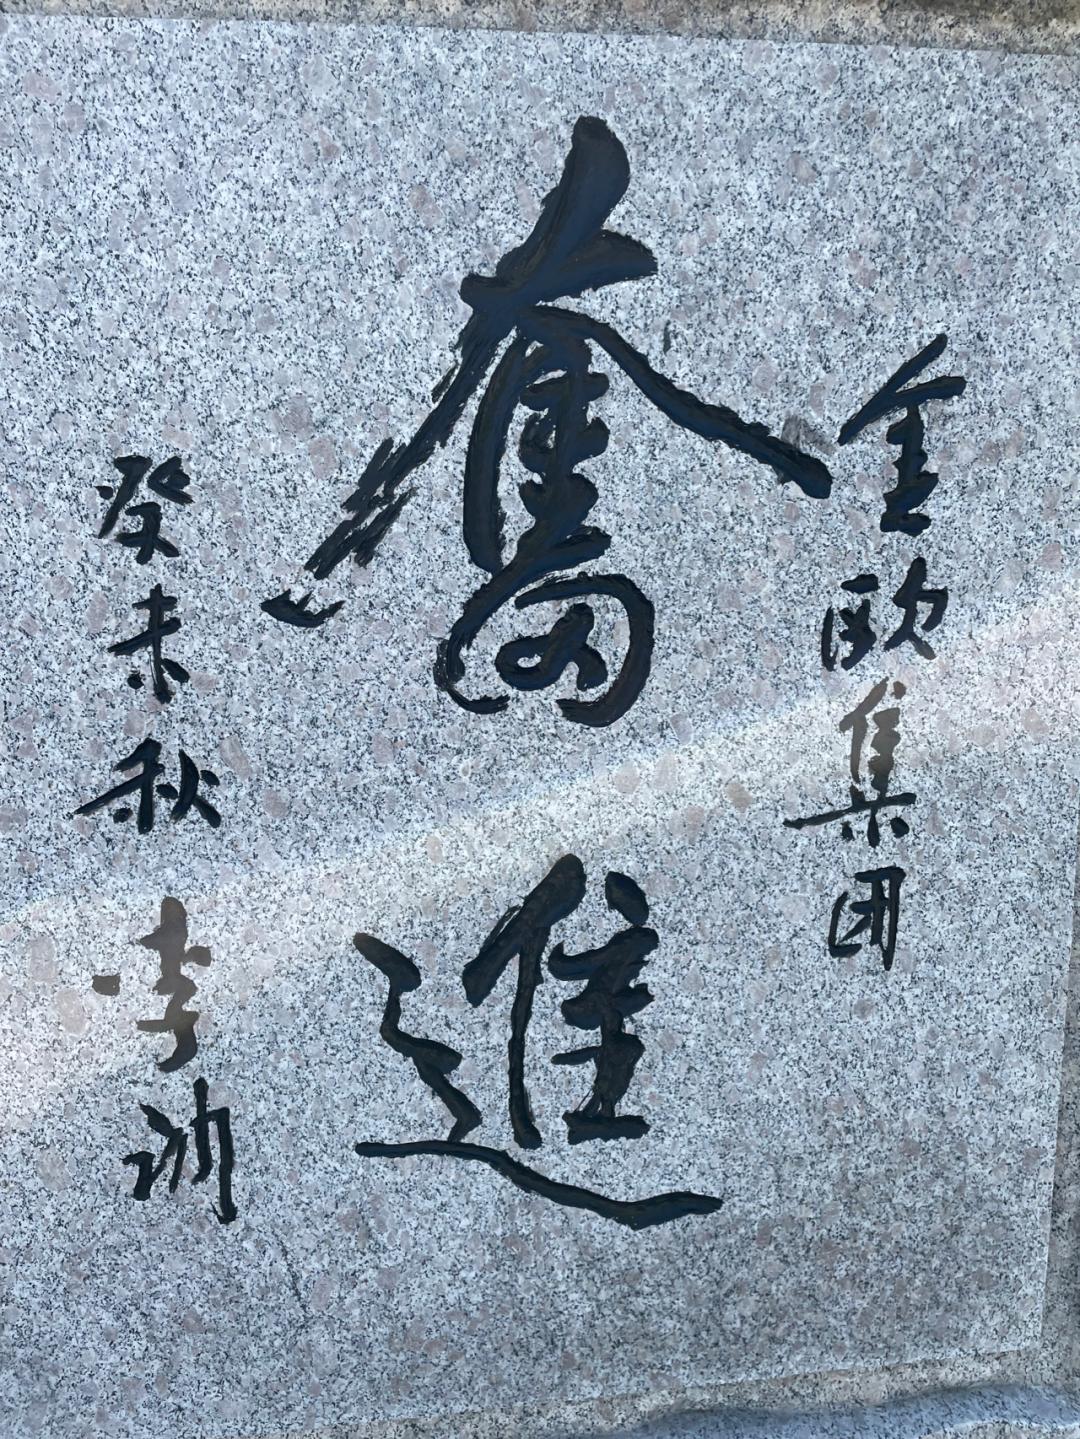 金欧集团
奮進
癸未秋
李